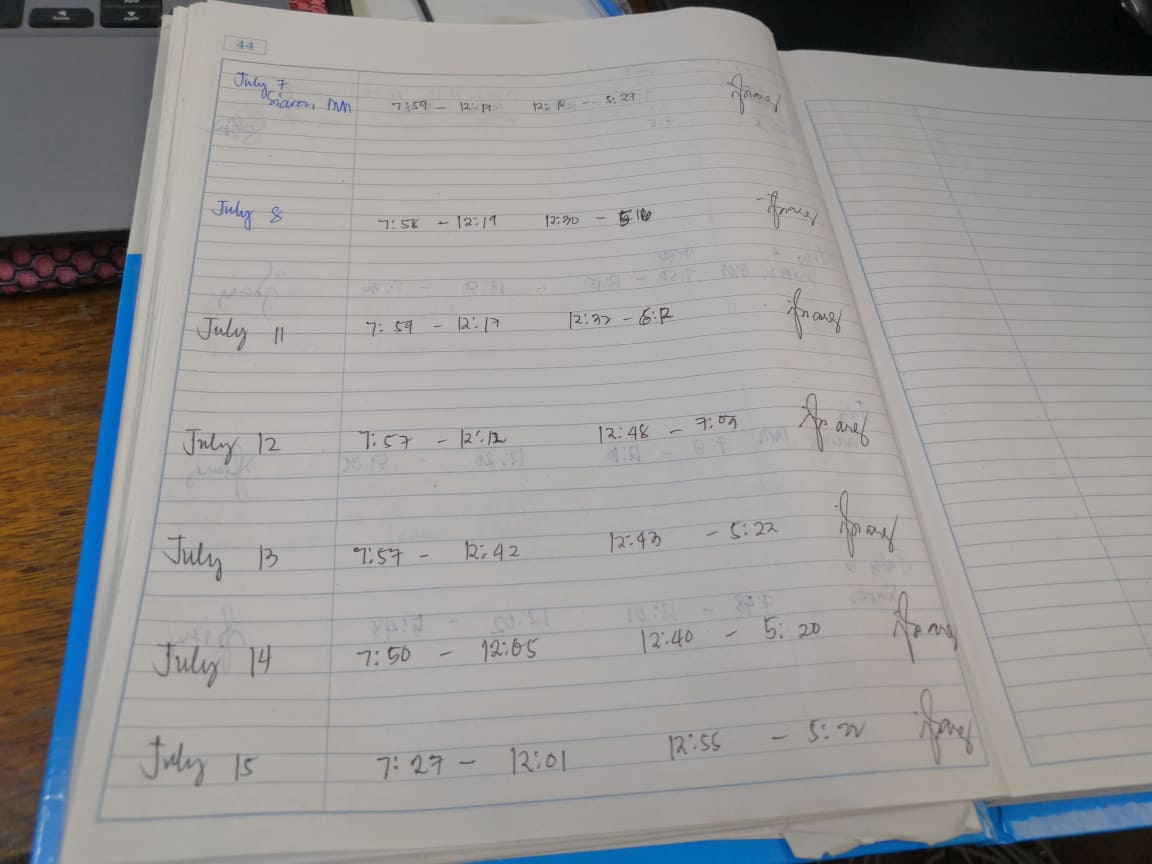 44
July 7
7:59 - 12:17 12:18 - 5:27
July 8 7:58 - 12:19 12:30 - 5:16
July 11 7:59 - 12:17 12:37 - 6:12
July 12 7:57 - 12:12 12:48 - 7:09
July 13 7:57 - 12:42 12:43 - 5:22
July 14 7:50 - 12:05 12:40 - 5:20
July 15 7:27 - 12:01 12:55 - 5:22